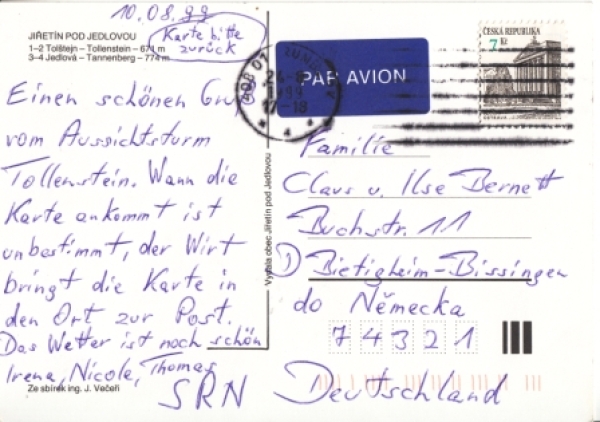 10.08.99
Karte bitte
zurück
JIŘETÍN POD JEDLOVOU
1–2 Tolštejn – Tollenstein – 671 m
3–4 Jedlová – Tannenberg – 774 m
Einen schönen Gruß
vom Aussichtsturm
Tollenstein. Wann die
Karte ankommt ist
unbestimmt, der Wirt
bringt die Karte in
den Ort zur Post.
Das Wetter ist noch schön
Irena, Nicole, Thomas
Ze sbírek ing. J. Večeři
Vydala obec Jiřetín pod Jedlovou
PAR AVION
1999
17-18
4
ČESKÁ REPUBLIKA
7 Kč
Familie
Claus u. Ilse Bernett
Buchstr. 11
D Bietigheim-Bissingen
do Německa
74321
SRN Deutschland